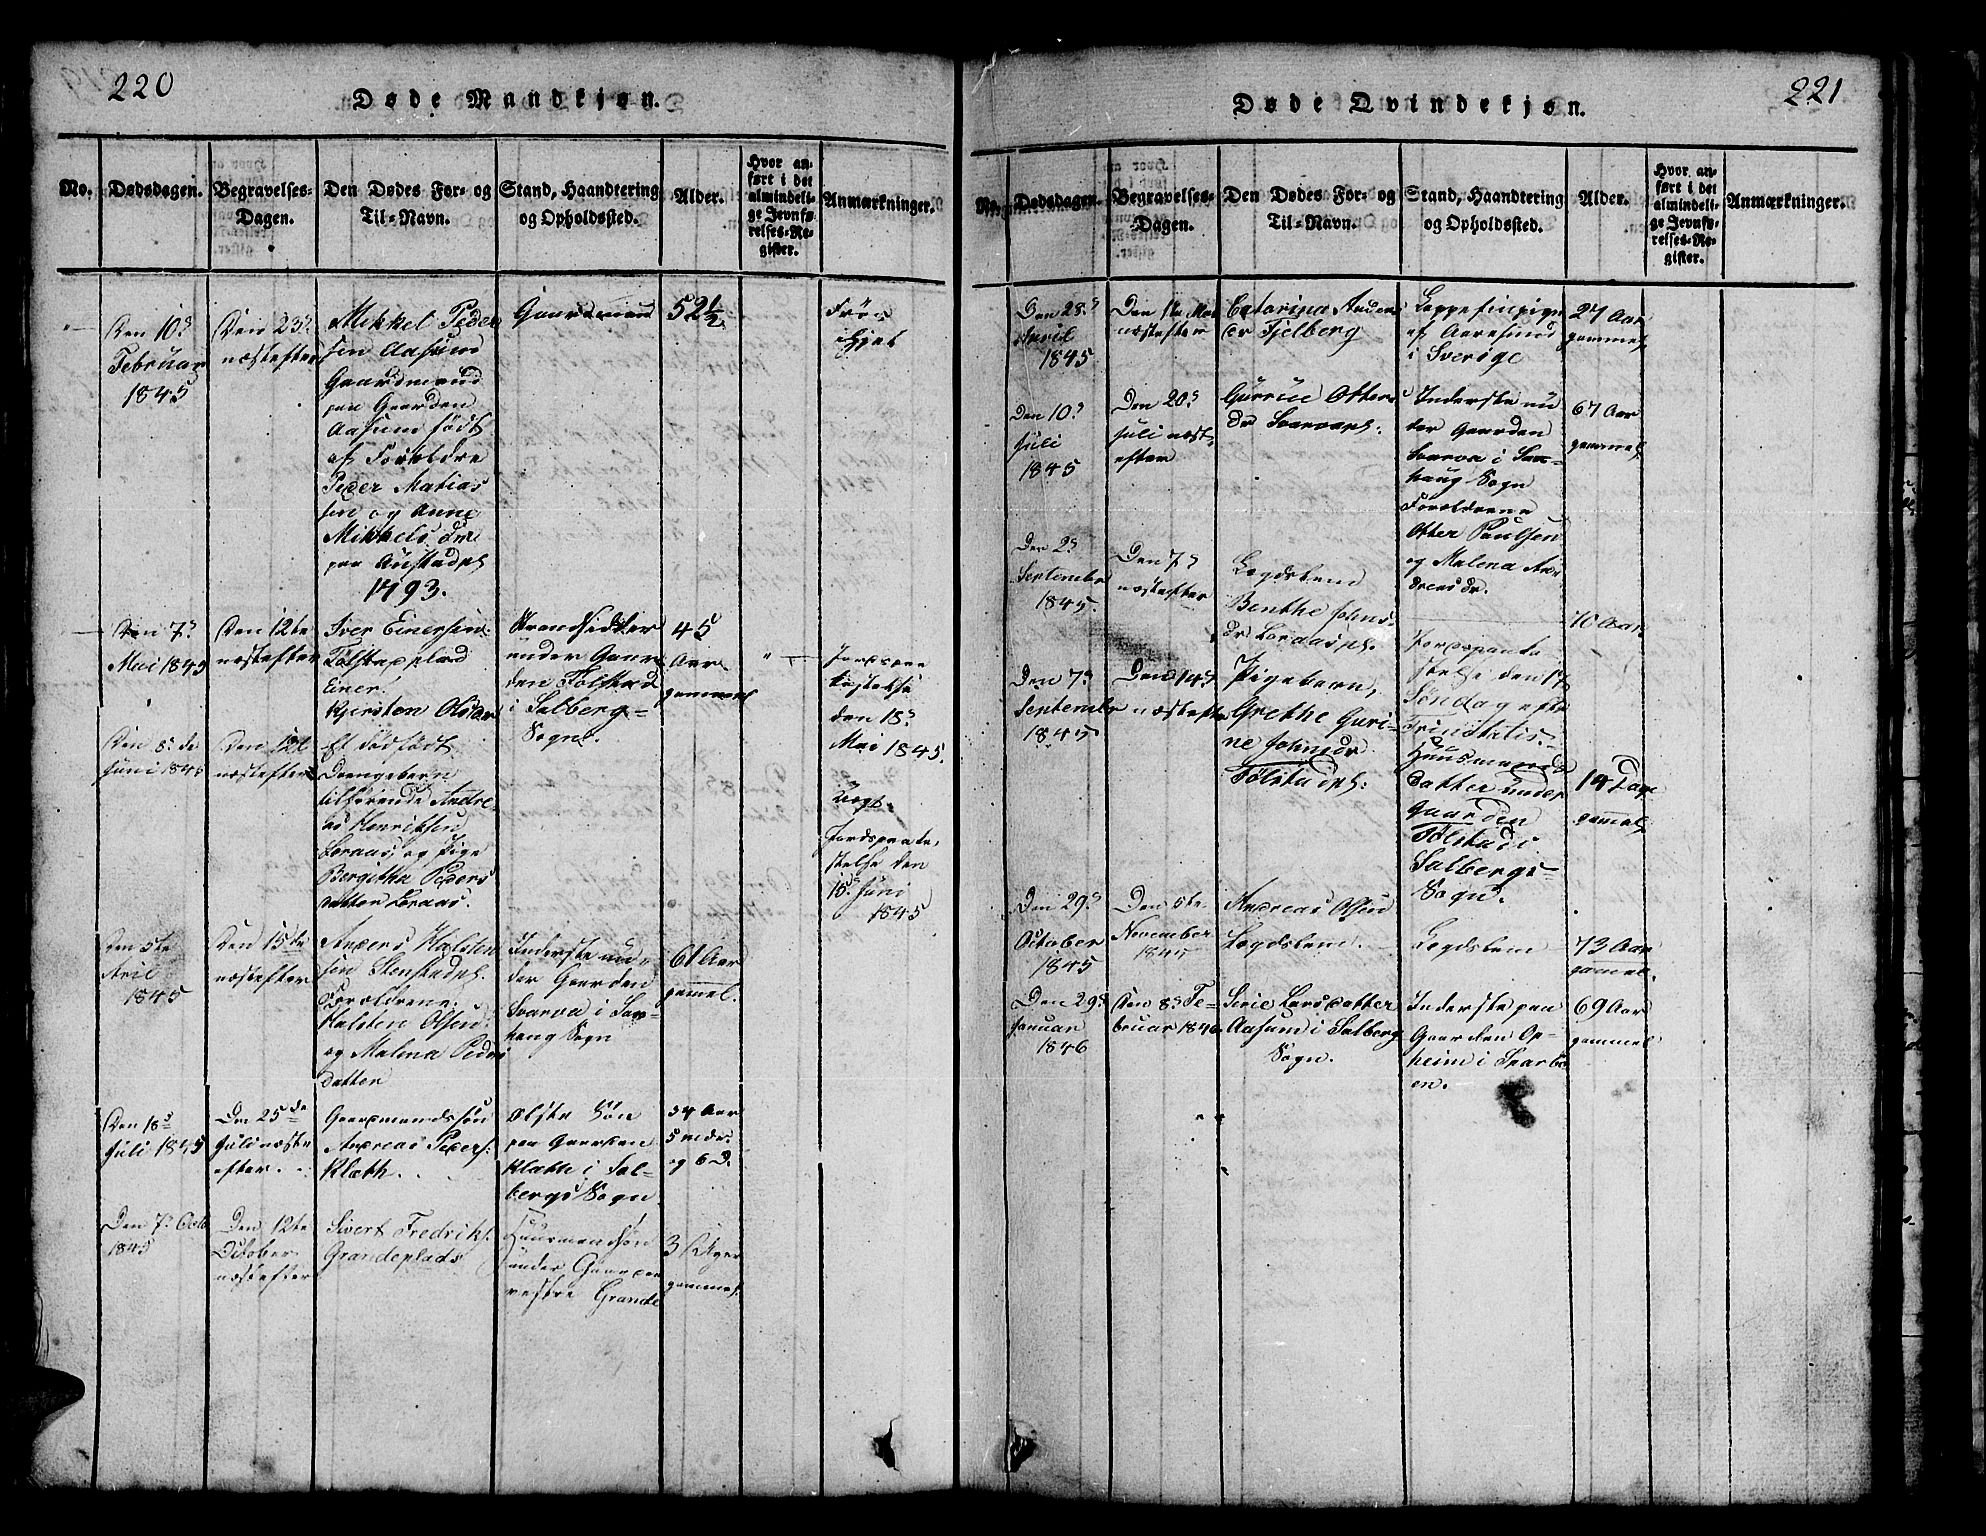 220
Døde Mandkjøn.
No.
Dødsdagen.
Begravelses-
Dagen.
Den Dødes For- og
Til-Navn.
Stand, Haandtering
og Opholdssted.
Alder.
Hvor an-
ført i det
almindeli-
ge Jevnfø-
relses-Re-
gister.
Anmærkninger.
Den 10.
Februar
1845
Den 23.
næstefter
Mikkel Peder
sen Aasum
Gaardmand
paa Gaarden
Aasum født
af Forældre
Peder Matias
sen og Anne
Mikkels dr
paa
1793.
Gaardmand
52 1/2
Den 7.
Mai 1845
Den 12te
næstefter
Iver Einersen
Tølstadplad
Einer
Kjersten Olsdr
Strandsidder
under Gaar
den Tølstad
i Salberg
Sogn.
45
Aar
gammel
den 18.
Mai 1845.
Den 8. de
Juni 1845
Den 12te
næstefter
Et dødfødt
Drengebarn
tilhørende Andre
as Henriksen
Loraas, og Pige
Bergitha Peders
datter Loraas.
Jordspaaka-
stelse den
15de Juni
1845
Den 5te
April
1845
Den 15de
næstefter
Anders Halsten
sen Stenstadpl.
Forældrene.
Halsten Olsen
og Malena Peders
datter
Inderste un-
der Gaarden
Svarva i San-
haug Sogn
61 Aar
gamel.
Den 18
Juli 1845
Den 25de
Juli næst
efter.
Gaardmandssøn
Andreas Peders:
Klæth.
Ælste Søn
paa Gaarden
Klæth i Sal-
bergs Sogn
34 Aar
5 mdr.
og 6 D.
Den 7. Octb
1845
Den 12te
October
næstefter
Sivert Fredriks.
Grandeplads
Huusmandsøn
under Gaarden
vestre Grande
3 Uger
gammel.
221
Døde Qvindekjøn.
No.
Dødsdagen.
Begravelses-
Dagen.
Den Dødes For- og
Til-Navn.
Stand, Haandtering
og Opholdssted.
Alder.
Hvor an-
ført i det
almindeli-
ge Jevnfø-
relses-Re-
gister.
Anmærkninger.
Den 28.
April
1845
Den 11te Mai
næstefter
Catarina Anders
dr Fjelberg
Lappefinpige
af Aaresund
i Sverige
27 Aar
gammel
Den 10.
Juli
1845
Den 20.
Juli næst
efter
Gurrue Otters
dr Svarvapl.
Inderste un
der Gaarden
Svarva i San-
haug Sogn
Forældrene
Otter Paulsen
og Malena An-
dreasdr.
67 Aar
gammel
Den 2.
September
1845.
Den 7.
næstefter
Lægdslem
Benthe Johns
dr Loraaspl.
Jordspaaka
stelse den 17
Søndag efter
Trinitatis.
70 Aar
Den 7.
September
1845
Den 14.
næstefter
Pigebarn,
Grethe Guri-
ne Johnsdr
Tølstadpl.
Huusmands
datter under
Gaarden
Tølstad i
Salbergs
Sogn.
14 Dage
gamel.
Den 29.
October
1845
Den 5te
November
1845
Andreas Olsen
Lægdslem.
Lægdslem
73 Aar
gamel.
Den 29.
Januar
1846
Den 8. Fe-
bruar 1846
Serie Larsdatter
Aasum i Salberg
Sogn.
Inderste paa
Gaarden Op-
heim i Sparbo
en.
69 Aar
gammel